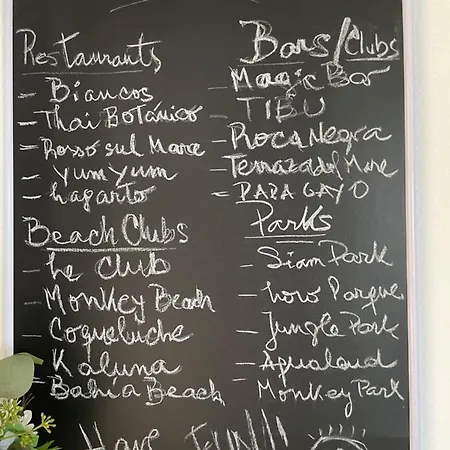 Restaurants
- Biancos
- Thai Botánico
- Rosso sul Mare
- Yum Yum
- Lagarto
Beach Clubs
- Le Club
- Monkey Beach
- Coqueluche
- Kaluna
- Bahía Beach
Bars/Clubs
- Magic Bar
- TIBU
- Roca Negra
- Terraza del Mare
- PAPAGAYO
Parks
- Siam Park
- Loro Parque
- Jungle Park
- Aqualand
- Monkey Park
Have FUN!!